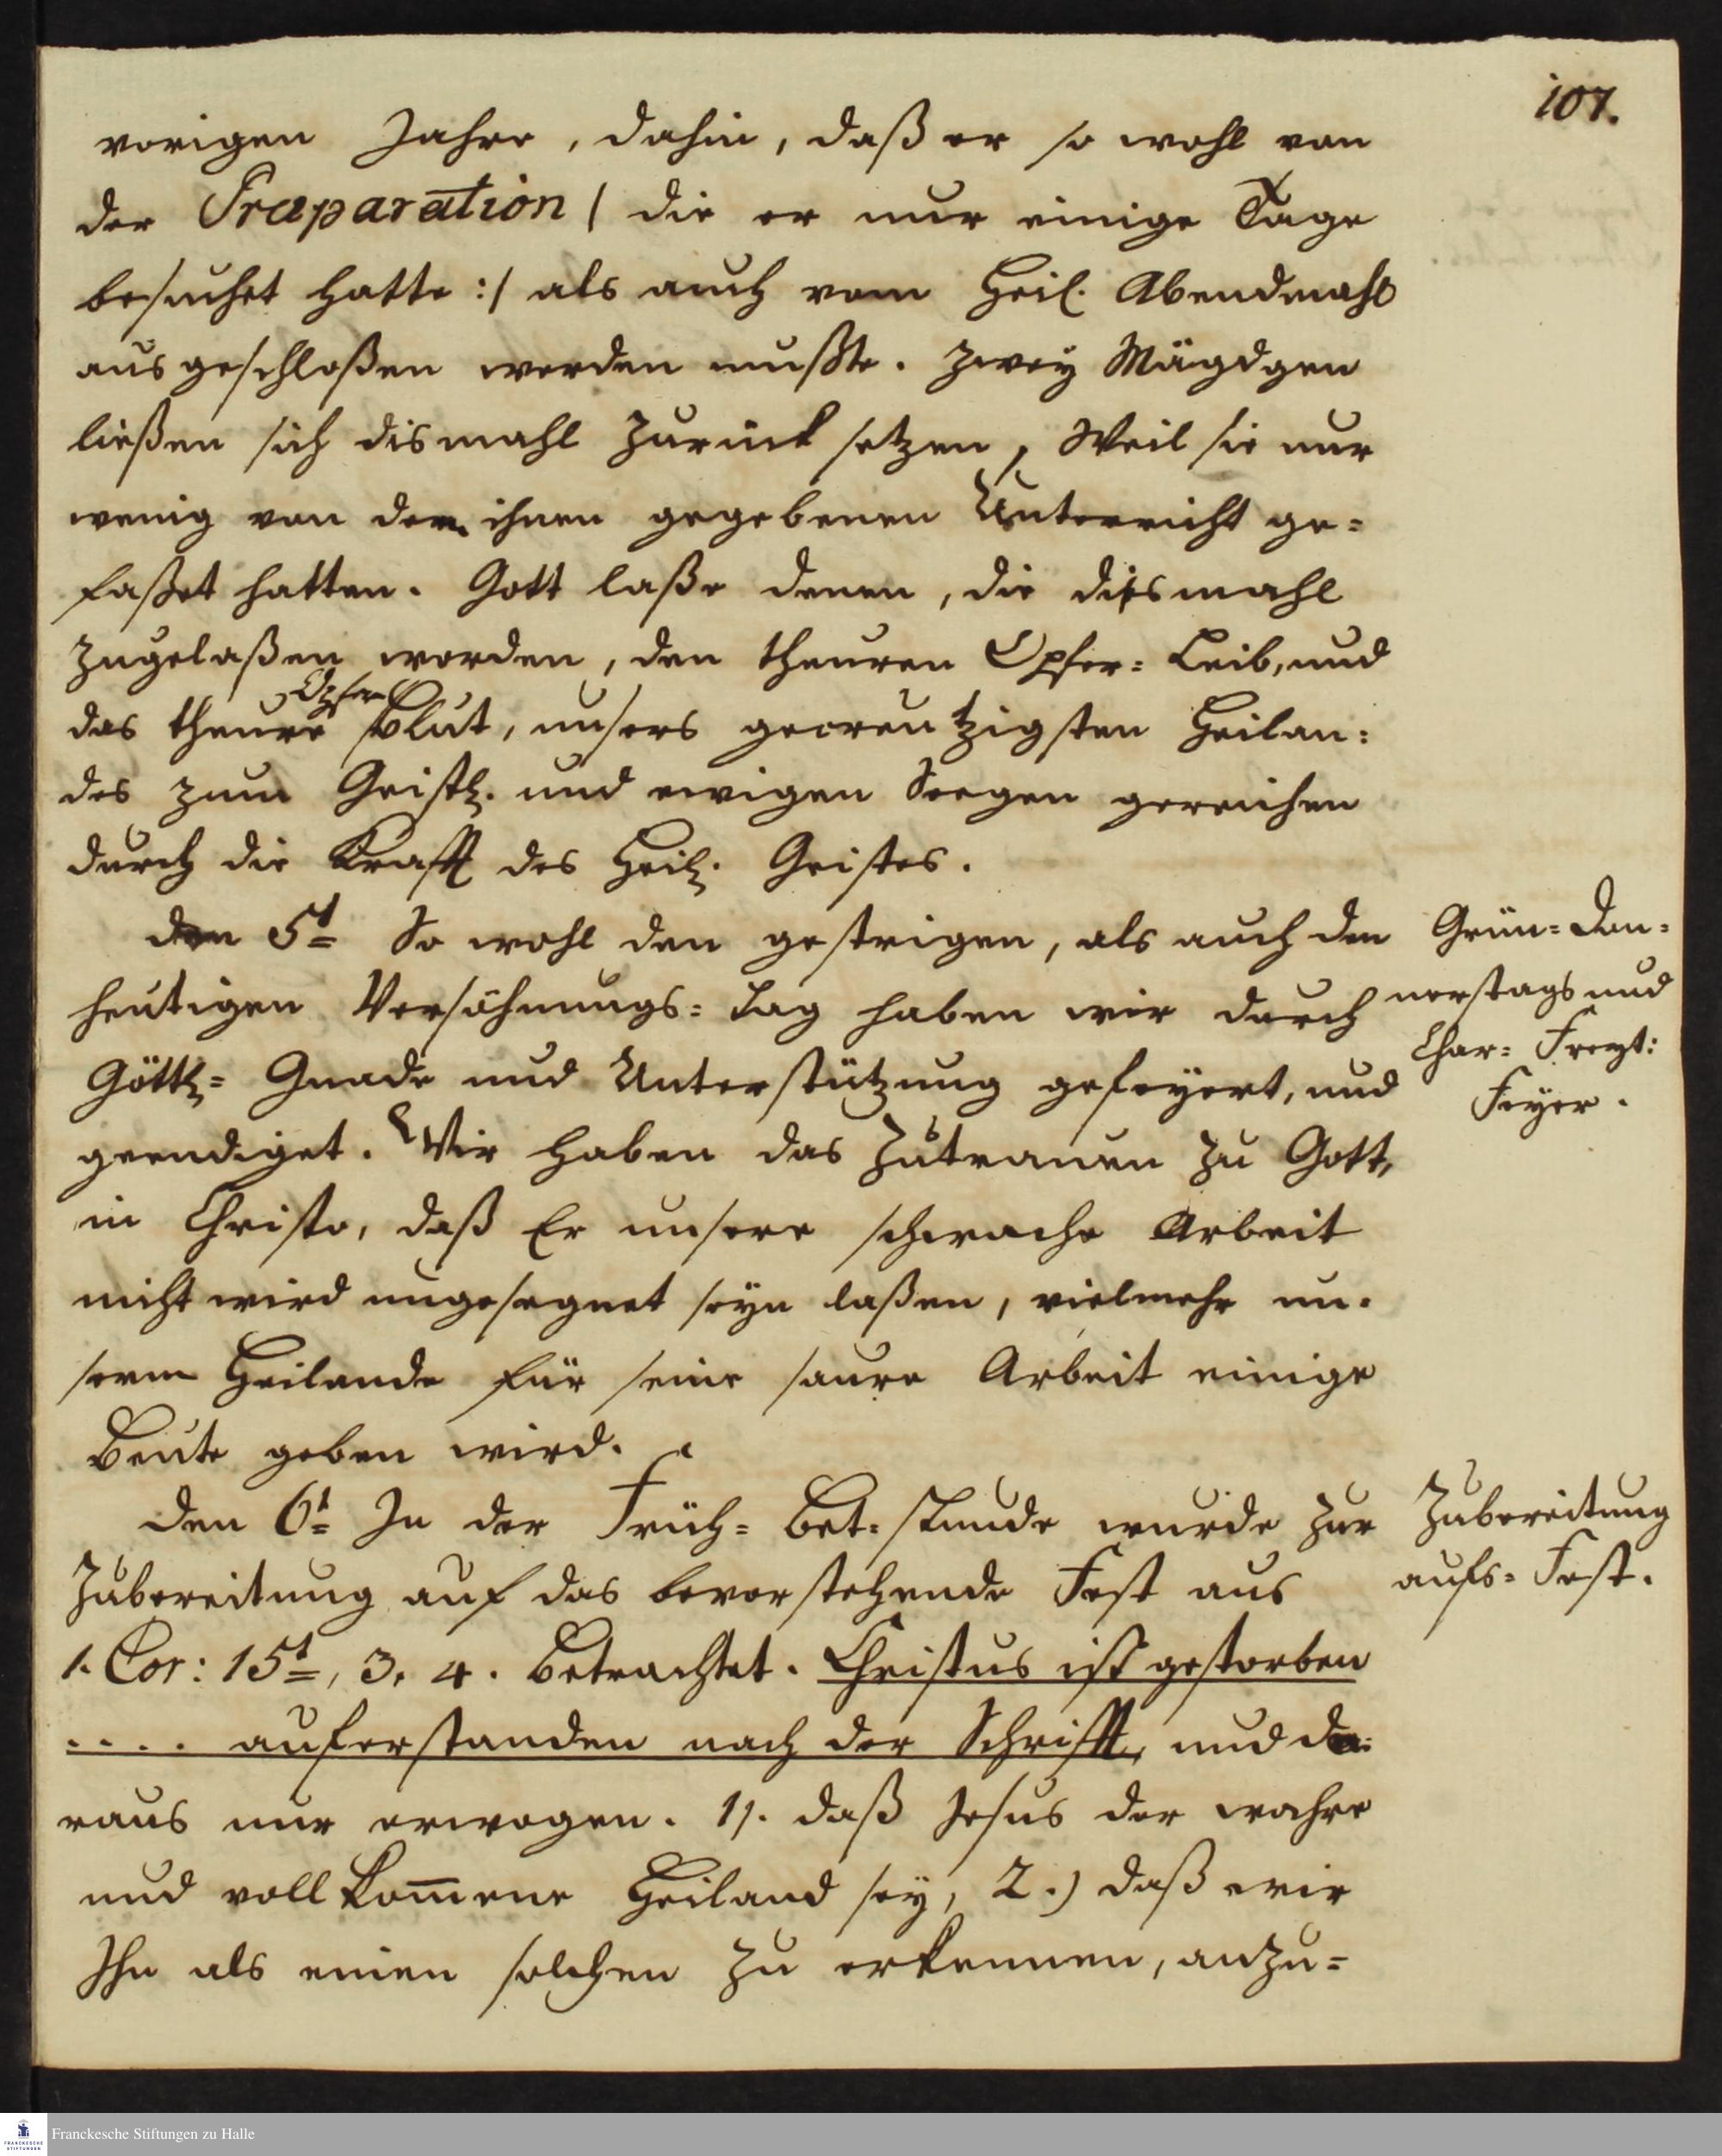 107.
vorigen Jahre, dahin, daß er so wohl von
der Præparation / die er nur einige Tage
besuchet hatte :/ als auch vom Heil. Abendmahl
ausgeschloßen werden mußte. Zwey Mägdgen
ließen sich dismahl zurück setzen, Weil sie nur
wenig von dem ihnen gegebenen Unterricht ge=
faßet hatten. Gott laße denen, die diesmahl
zugelaßen worden, den theuren Opfer= Leib, und
das theure Opfer Blut, unsers gecreutzigsten Heilan=
des zum Geistl. und ewigen Seegen gereichen
durch die Krafft des Heil. Geistes.
den 5t So wohl den gestrigen, als auch den
heutigen Versöhnungs= Tag haben wir durch
Göttl= Gnade und Unterstützung gefeyert, und
geendiget. Wir haben das Zutrauen zu Gott,
in Christo, daß Er unsere schwache Arbeit
nicht wird ungesegnet seyn laßen, vielmehr un=
serm Heilande für seine saure Arbeit einige
Beute geben wird.
Grün= Don=
nerstags und
Char= Freyt:
Feyer.
den 6t In der Früh= Bet= stunde wurde zur
Zubereitung auf das bevorstehende Fest aus
1. Cor: 15t, 3. 4. betrachtet. Christus ist gestorben
.... auferstanden nach der Schrifft, und da=
raus nur erwogen. 1). daß Jesus der wahre
und vollkom̅ene Heiland sey, 2.) daß wir
Ihn als einen solchen zu erkennen, anzu=
Zubereitung
aufs= Fest.
Franckesche Stiftungen zu Halle
FRANCKESCHE
STIFTUNGEN